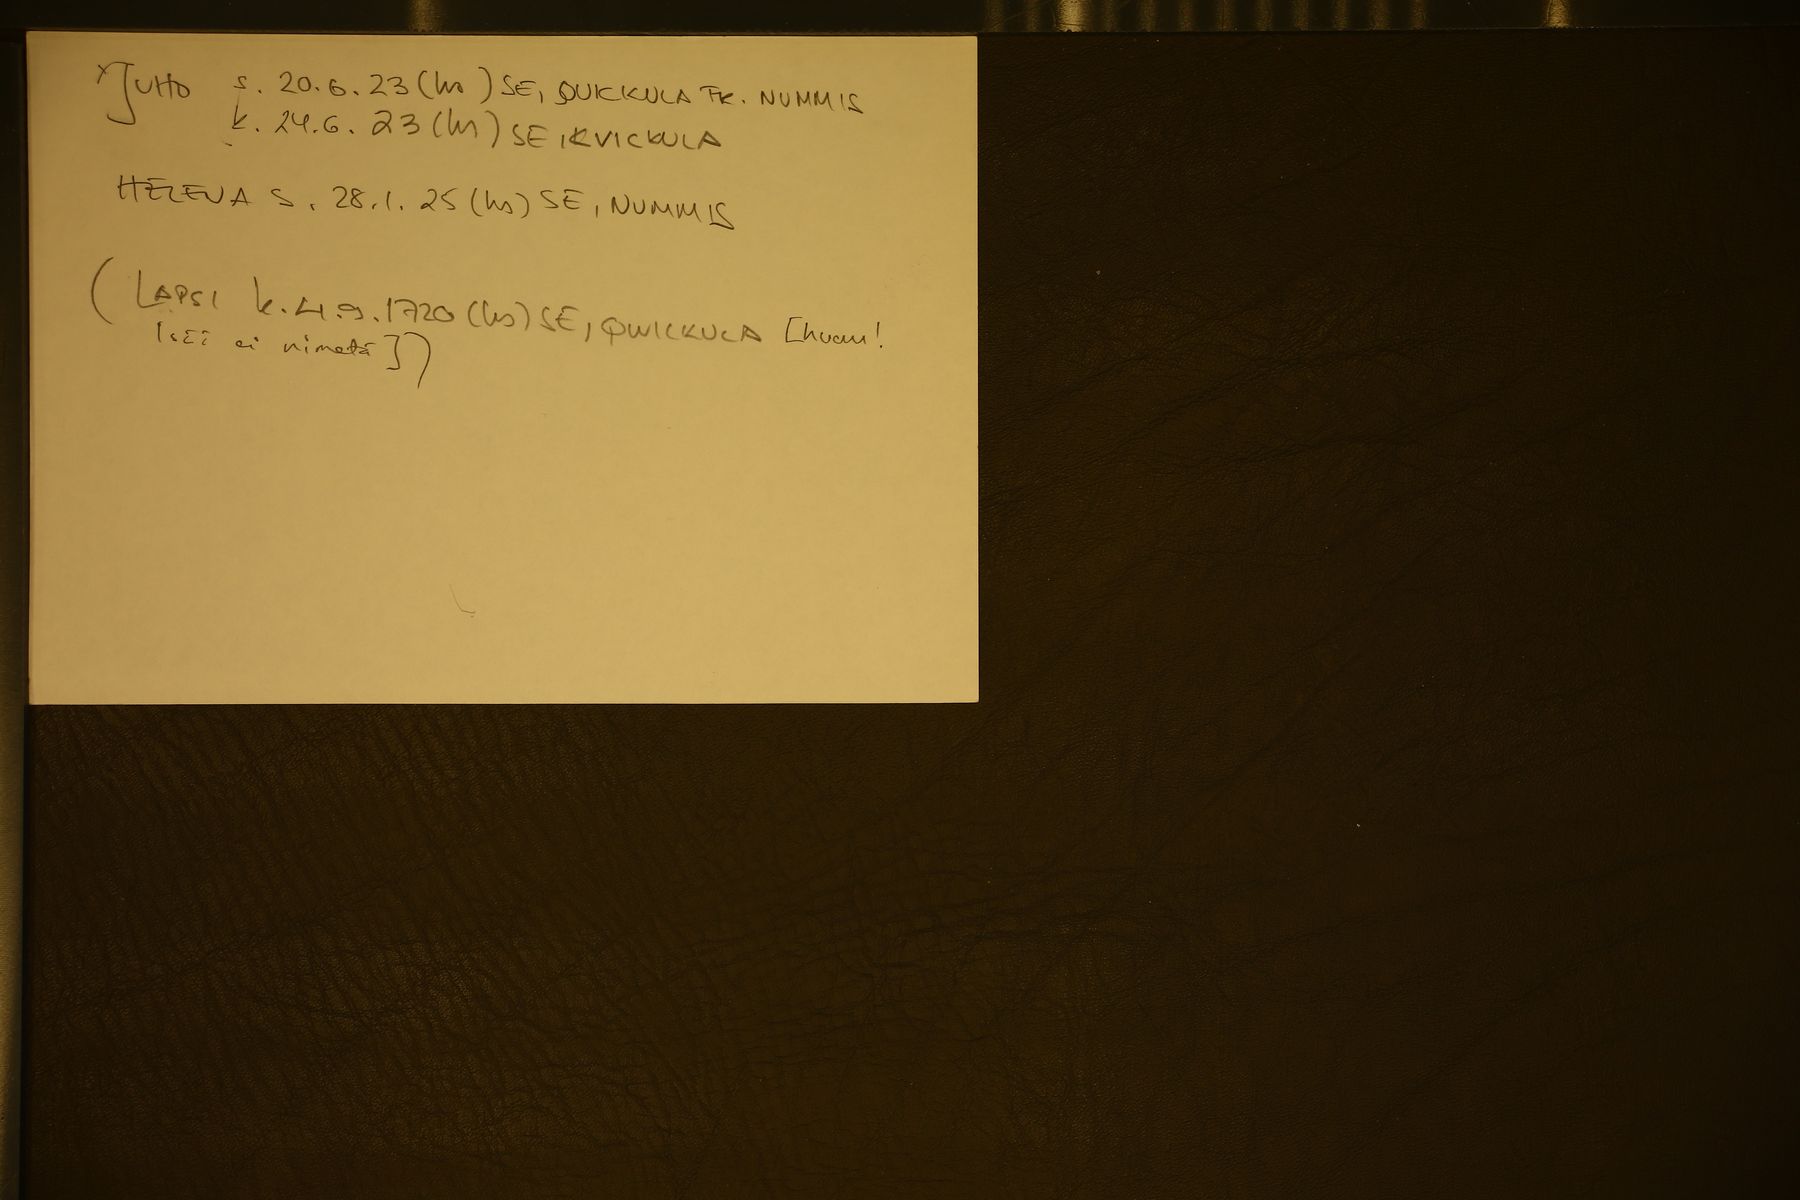 x Juho s. 20.6.23 (hs) SE, QUICKKULA FR. NUMMIS
k. 24.6.23 (hs) SE, KVICKULA
HELENA S. 28.1.25 (hs) SE, NUMMIS
(LAPSI k. 4.9.1720 (hs) SE, QWICKULA [huom!
Isää ei nimetä])